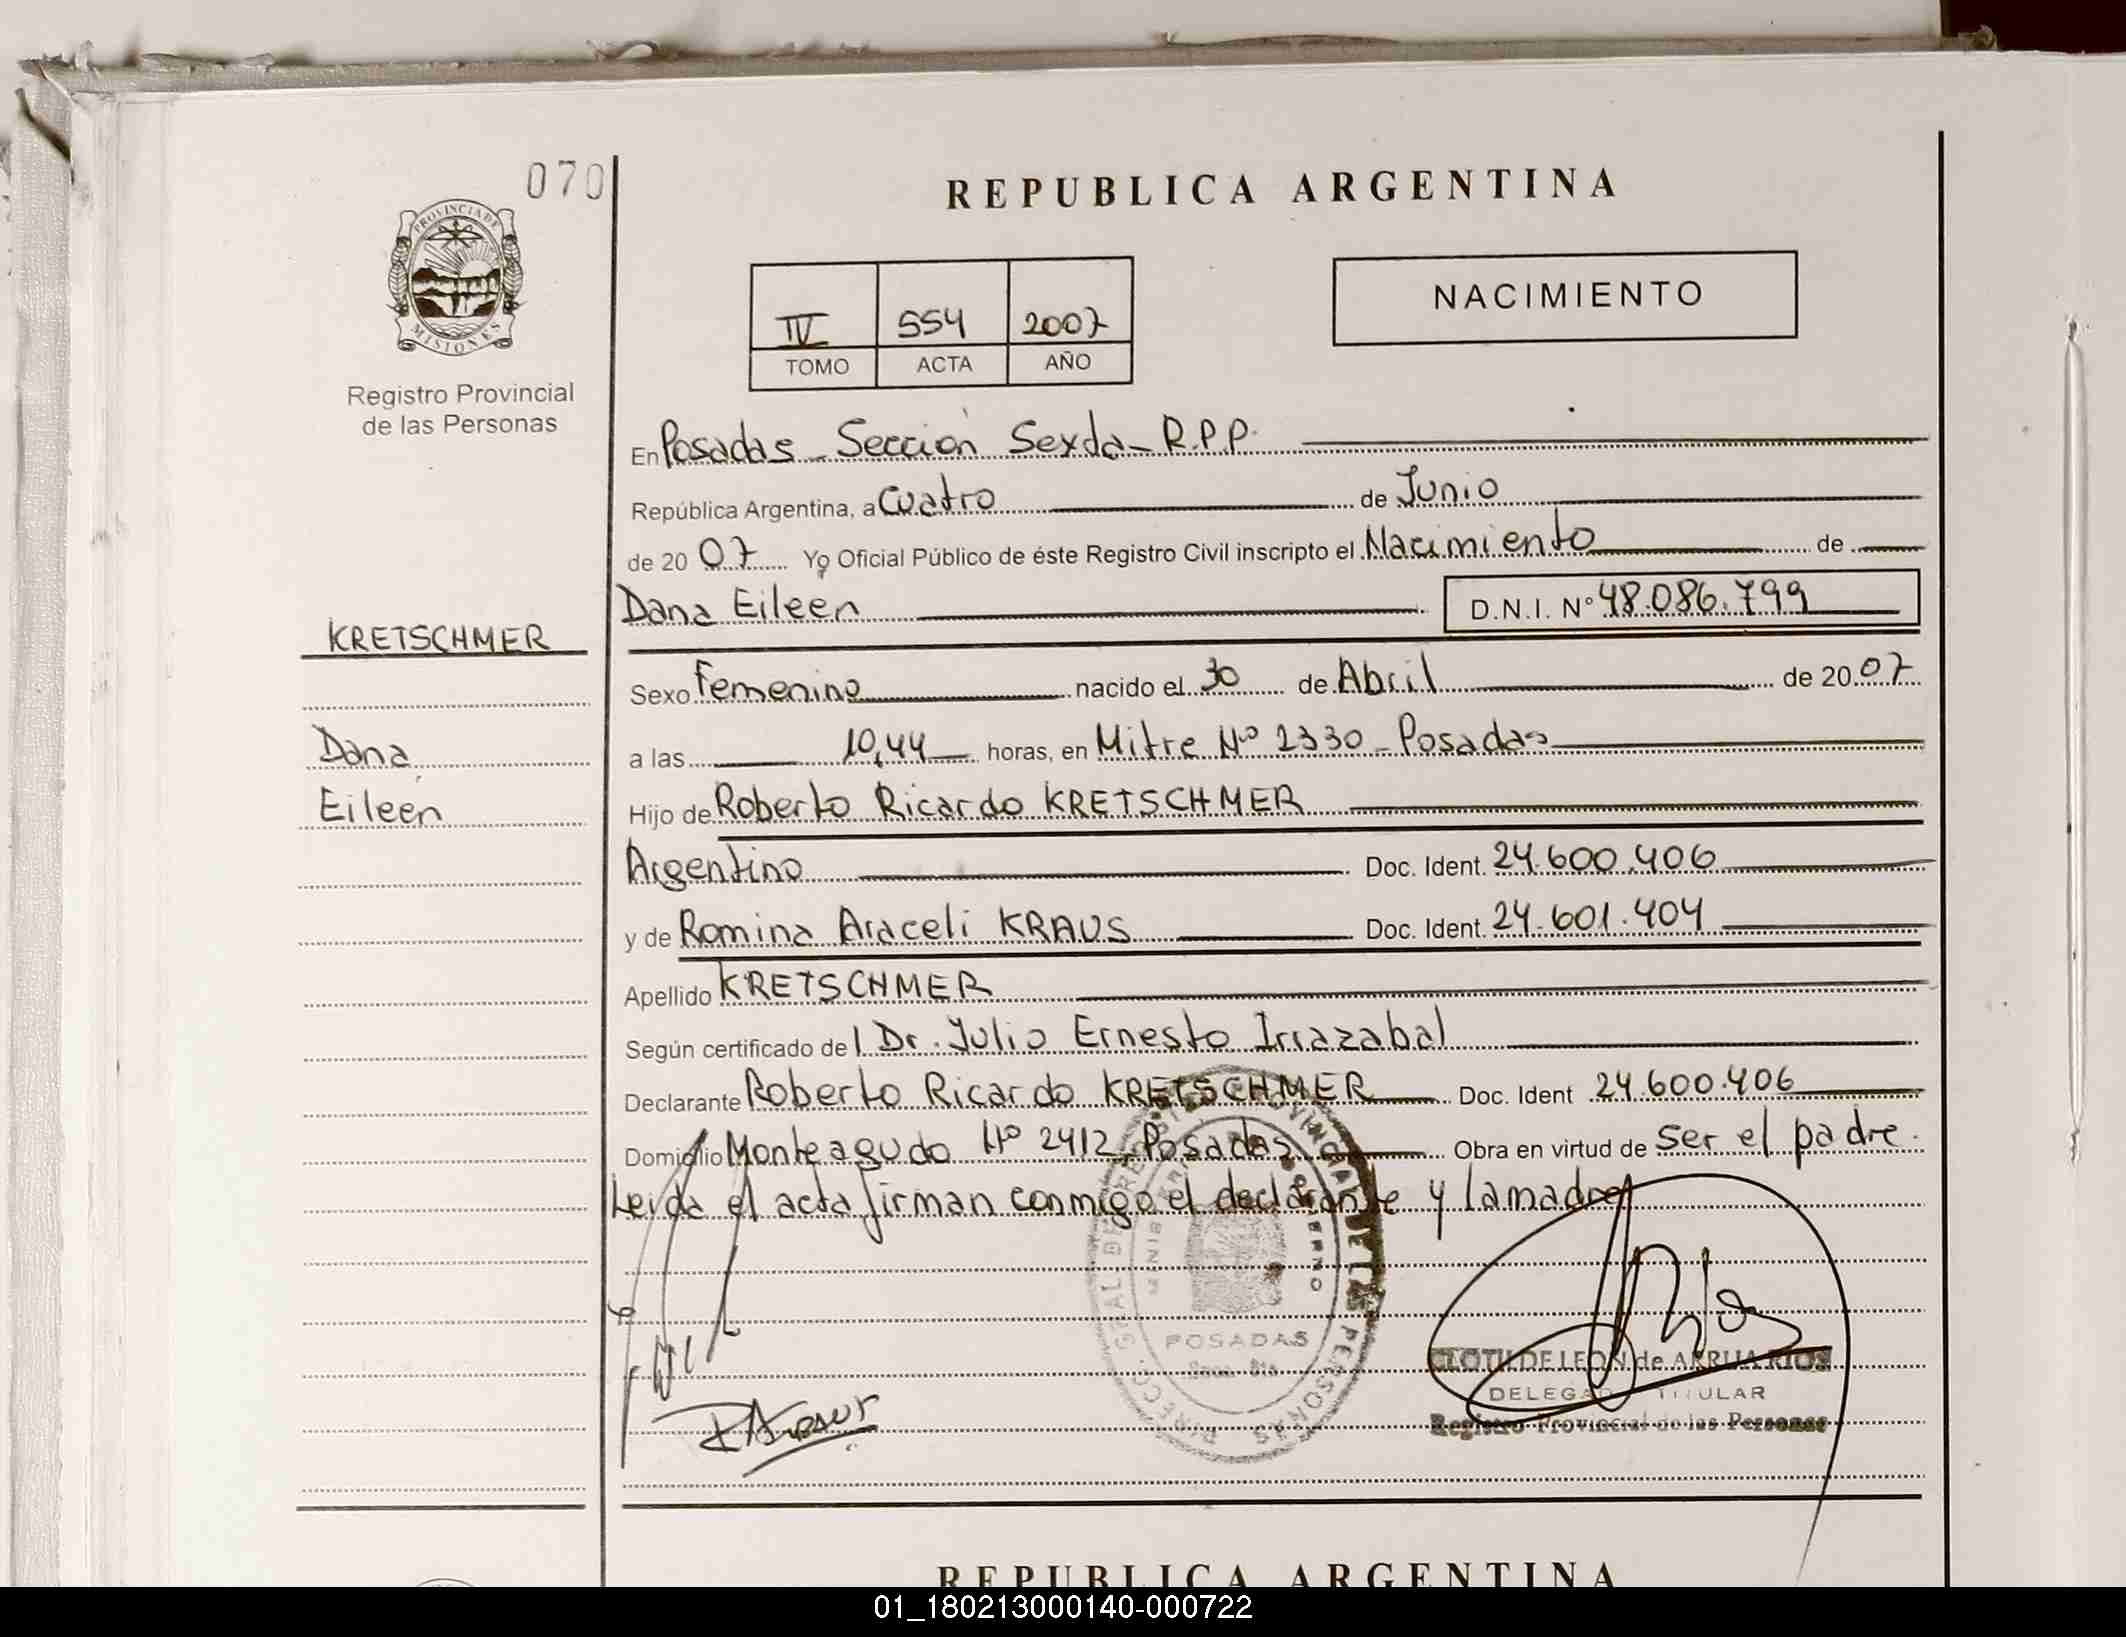 070
PROVINCIA DE
MISIONES
Registro Provincial
de las Personas
REPUBLICA ARGENTINA
IV 554 2007
TOMO ACTA AÑO
NACIMIENTO
En Posadas - Sección Sexta - R.P.P.
República Argentina, a Cuatro de Junio
de 20 07 Yo Oficial Público de éste Registro Civil inscripto el Nacimiento de
Dana Eileen D.N.I. Nº 48.086.799
KRETSCHMER
Dana
Eileen
Sexo Femenino nacido el 30 de Abril de 20 07
a las 10,44 horas, en Mitre Nº 2330 - Posadas
Hijo de Roberto Ricardo KRETSCHMER
Argentino Doc. Ident. 24.600.406
y de Romina Araceli KRAUS Doc. Ident. 24.601.404
Apellido KRETSCHMER
Según certificado del Dr. Julio Ernesto Irrazabal
Declarante Roberto Ricardo KRETSCHMER Doc. Ident 24.600.406
Domicilio Monteagudo Nº 2412 Posadas Obra en virtud de ser el padre.
Leida el acta firman conmigo el declarante y la madre
POSADAS
CLOTILDE LEON de ARRUA RIOS
DELEGADO TITULAR
Registro Provincial de las Personas
REPUBLICA ARGENTINA
01_180213000140-000722